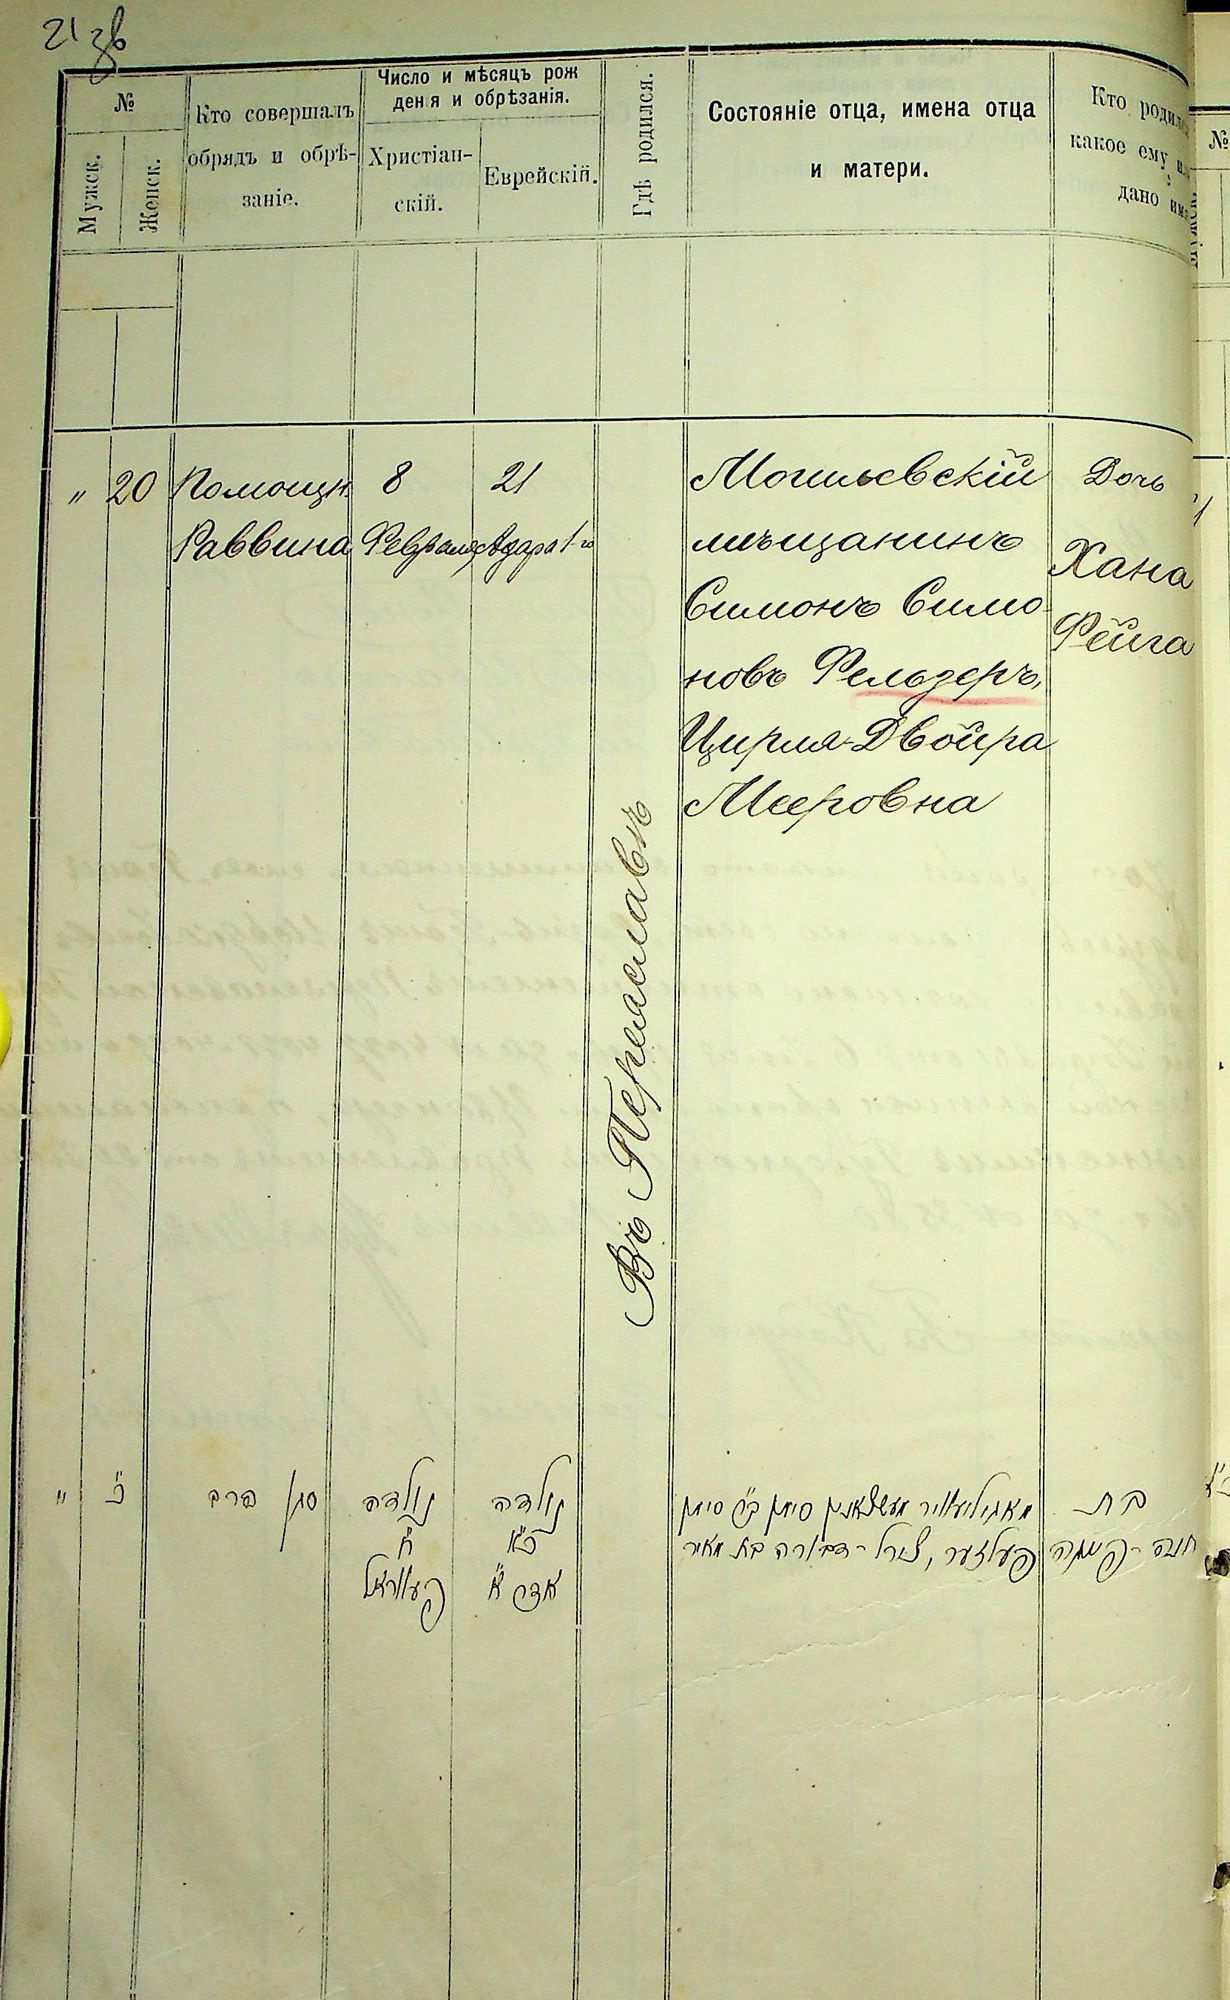 21 зв
№
Мужск.
Женск.
Кто совершалъ
обрядъ и обрѣ-
заніе.
Число и мѣсяцъ рож
денія и обрѣзанія.
Христіан-
скій.
Еврейскій.
Гдѣ родился.
Состояніе отца, имена отца
и матери.
Кто родил
какое ему
дано имя
№
„ 20
Помощн.
Раввина
8
Февраля
21
Адара 1-го
Въ Переяславѣ
Могилевскій
мѣщанинъ
Симонъ Симо
новъ Фельзеръ,
Цирля-Двойра
Мееровна
Дочь
Хана
Фейга
„ כ׳
סגן הרב
נולדה
ח׳
פעווראל
נולדה
כ״א
אדר א׳
מאגיליעווער מעשצאנין סימן ב״ר סימן
פעלזער, צירל-דבורה בת מאיר
בת
חנה-פייגה